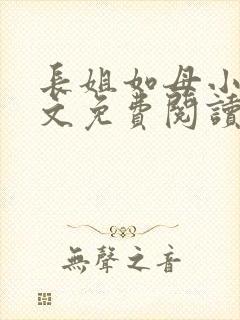 長姐如母小
文免費閱讀
無聲之音